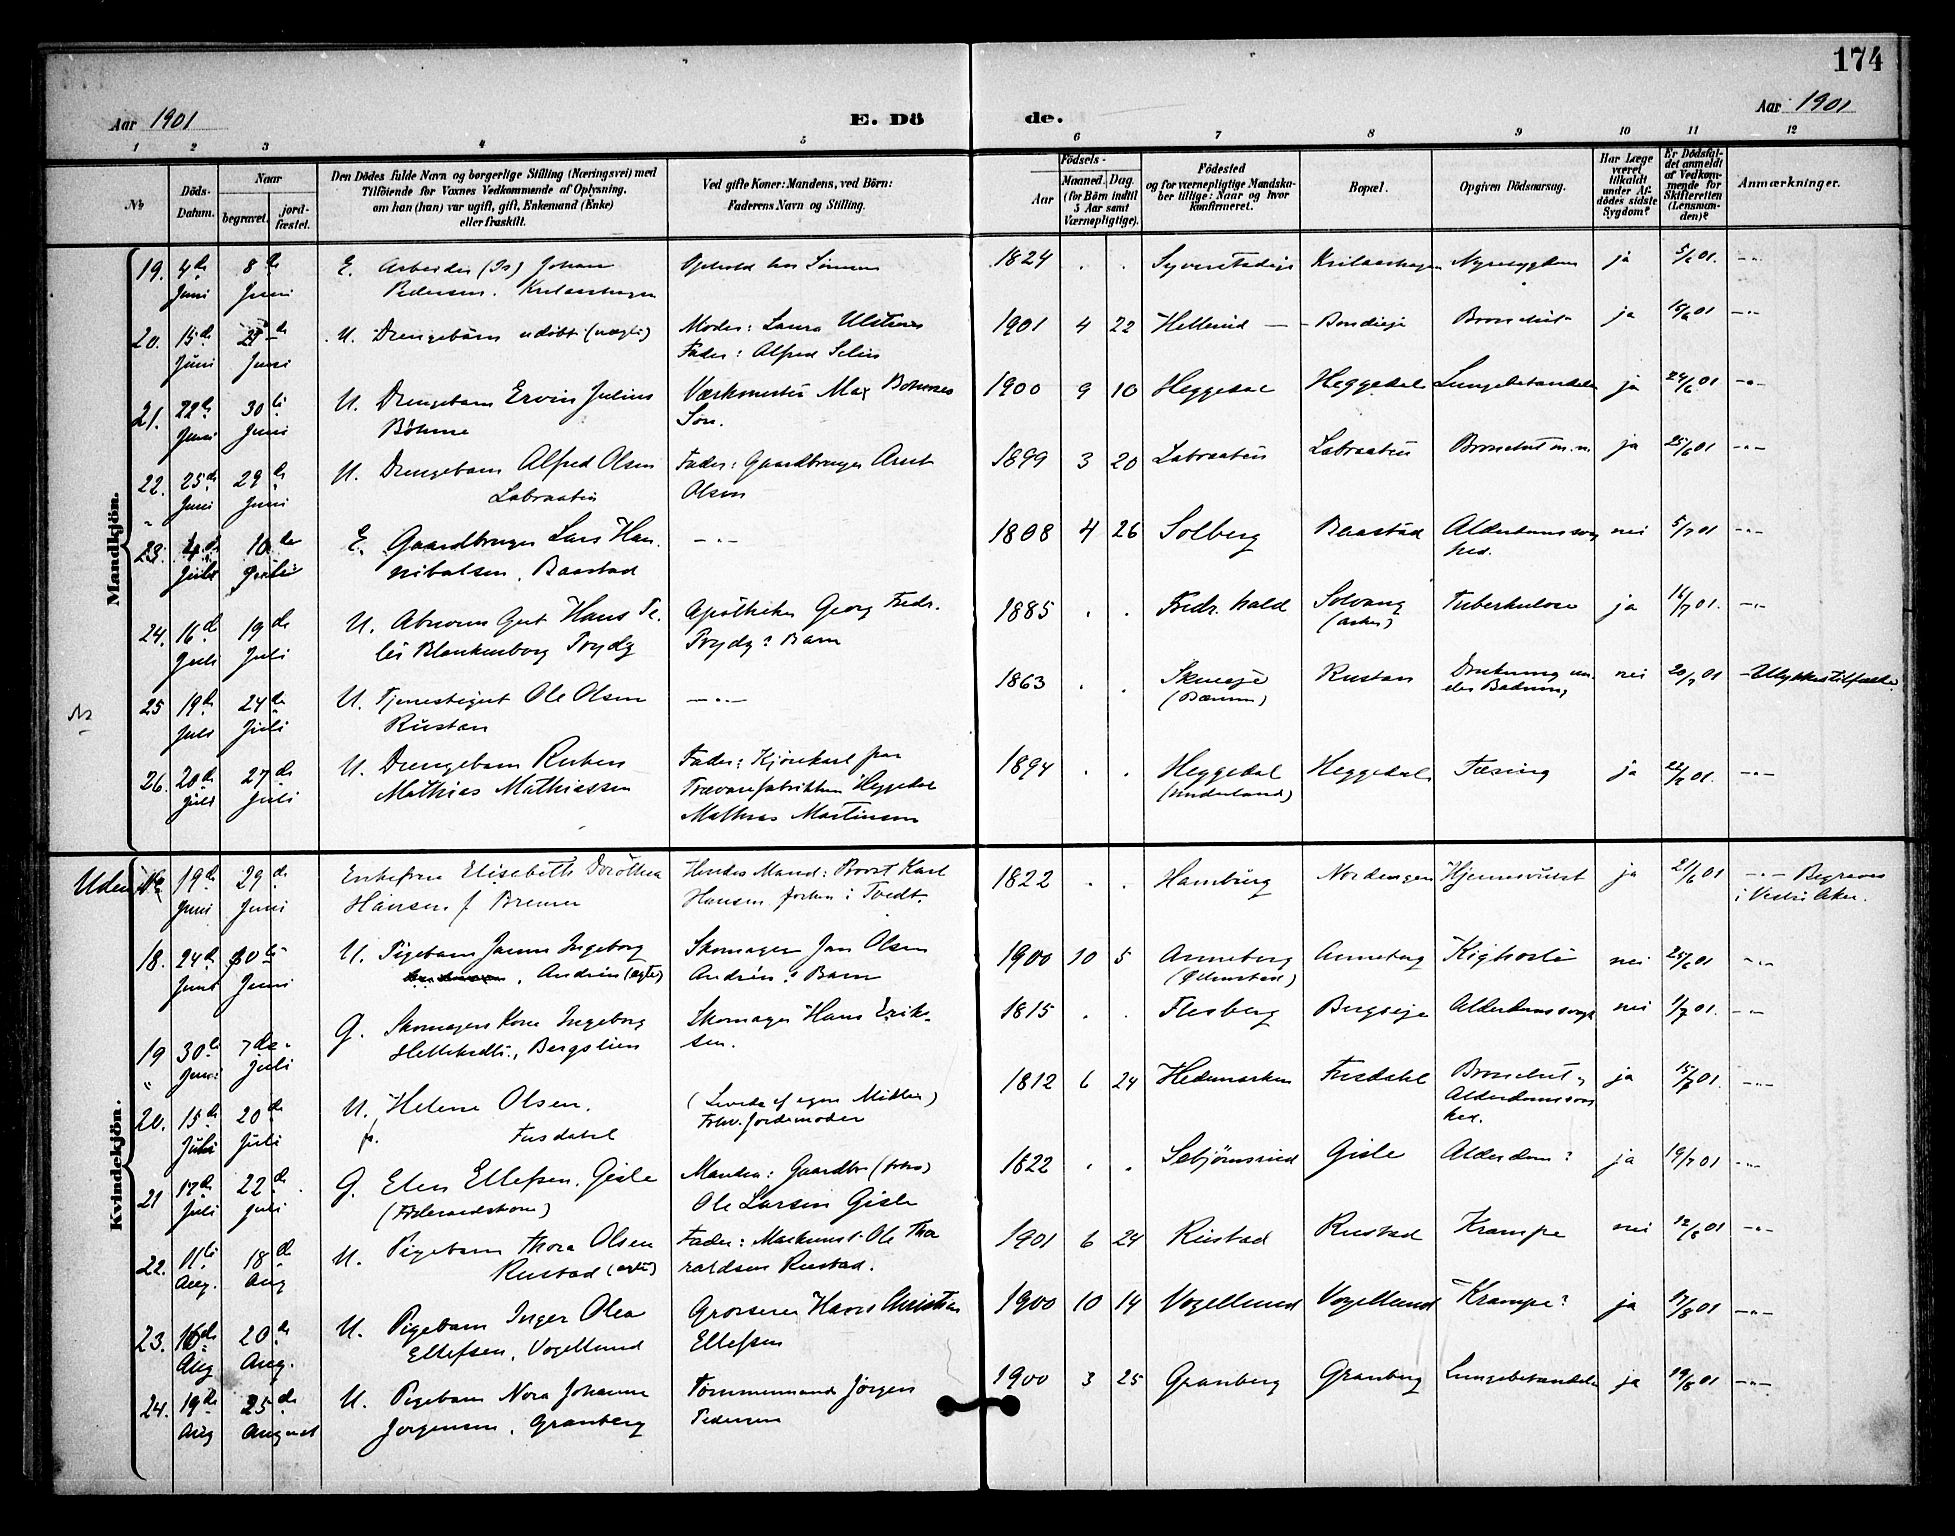 174
Aar 1901
E. Dö
de.
Aar 1901
1 2 3 4 5 6 7 8 9 10 11 12
№
Döds-
Datum.
Naar
begravet.
jord-
fæstet.
Den Dödes fulde Navn og borgerlige Stilling (Næringsvei) med
Tilföiende for Voxnes Vedkommende af Oplysning,
om han (hun) var ugift, gift, Enkemand (Enke)
eller fraskilt.
Ved gifte Koner: Mandens, ved Börn:
Faderens Navn og Stilling.
Födsels-
Aar
Maaned. Dag.
(for Börn indtil
5 Aar samt
Værnepligtige).
Födested
og for værnepligtige Mandska-
ber tillige: Naar og hvor
konfirmeret.
Bopæl.
Opgiven Dödsaarsag.
Har Læge
været
tilkaldt
under Af-
dödes sidste
Sygdom?
Er Dödsfal-
det anmeldt
af Vedkom-
mende for
Skifteretten
(Lensman-
den)?
Anmærkninger.
Mandkjön.
19. 4de 8de E. Arbeider (Is) Johan 1824 . . ja 5/6 01. -"-
Juni Juni Pedersen.
20. 15de 23de U. Drengebarn udöbt (uægte) Moder: Laura 1901 4 22 Hellerud — Bondieje ja 15/6 01 -"-
Juni Juni Fader: Alfred
21. 22de 30te U. Drengebarn Ervin Julius Værkmester Max Böhmes 1900 9 10 Heggedal Heggedal Lungebetændelse ja 24/6 01 -"-
Juni Juni Böhme Sön.
22. 25de 29de U. Drengebarn Alfred Olsen Fader: Gaardbruger Arnt 1899 3 20 Labraaten Labraaten Bronchit m.m. ja 25/6 01 -"-
Juni Juni Labraaten Olsen
23. 4de 10de E. Gaardbruger Lars Han- -"- 1808 4 26 Solberg Baastad Alderdomssvag nei 5/7 01 -"-
Juli Juli nibalsen, Baastad hed.
24. 16de 19de U. Hans Te- Apotheker Georg Fredr. 1885 . . Fredr.hald Solvang Tuberkulose ja 16/7 01. -"-
Juli Juli Blankenborg Prydz Prydz' Barn (Asker)
25 19de 24de U. Tjenestegut Ole Olsen -"- 1863 . . Rustan Drukning un- nei 20/7 01 Ulykkestilfælde.
Juli Juli Rustan (Bærum) der Badning
26. 20de 27de U. Drengebarn Ruben Fader: Kjörekarl paa 1894 . . Heggedal Heggedal Tæring ja 22/7 01. -"-
Juli Juli Mathias Mathiassen Trævarefabrikken Heggedal
Mathias Martinsen
Kvindekjön.
Uden No 19de 29de Enkefrue Elisabeth Dorothea Hendes Mand: Karl 1822 . . Hamburg Nordengen ja 21/6 01 -"- Begraves
Juni Juni Hansen f. Bremer Hansen i Tvedt. i Vestre Aker.
18. 24de 30te U. Pigebarn Ingeborg Skomager Jan Olsen 1900 10 5 Anneberg Anneberg Kighoste nei 25/6 01 -"-
Juni Juni Andrén (ægte) Andréns Barn
19 30te 7de G. Skomagers Kone Ingeborg Skomager Hans Erik- 1815 . . Flesberg Alderdomssvagh nei 1/7 01. -"-
Juni Juli Bergslien sen.
20. 15de 20de U. Helene Olsen. (Levede af egne Midler) 1812 6 24 Hedemarken Fusdahl Bronchit, ja 15/7 01. -"-
Juli Juli fr. Fusdahl Fhv. Jordemoder Alderdomssvag
hed.
21 17de 22de G. Elen Ellefsen. Gisle Manden: Gaardbr 1822 . . Gisle Alderdom? ja 19/7 01 -"-
Juli Juli (Föderaadskone) Ole Larsen Gisle
22. 11te 18de U. Pigebarn Thora Olsen Fader: Maskinist Ole Tho 1901 6 24 Rustad Rustad Krampe nei 12/8 01 -"-
Aug. Aug Rustad (ægte) raldsen Rustad.
23. 16de 20de U. Pigebarn Inger Olea Grosserer Hans Christian 1900 10 14 Vogellund Vogellund Krampe? ja 17/8 01 -"-
Aug Aug. Ellefsen, Vogellund Ellefsen
24. 19de 25de U. Pigebarn Nora Johanne Tömmermand Jörgen 1900 3 25 Granberg Granberg Lungebetændelse ja 19/8 01 -"-
Aug August Jörgensen, Granberg Pedersen